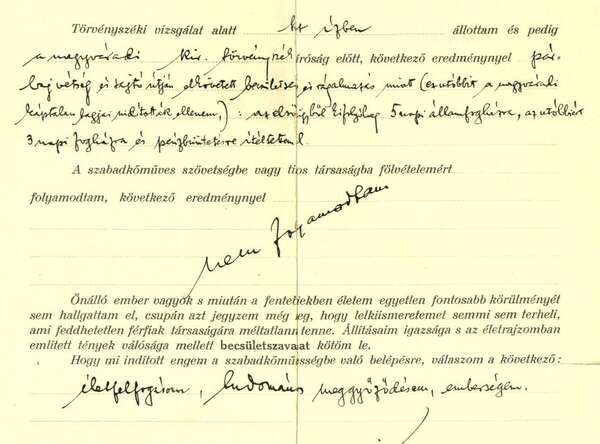 Törvényszéki vizsgálat alatt két ízben állottam és pedig
a nagyváradi kir. törvényszék bíróság előtt, következő eredménynyel pár-
baj vétség és sajtó útján elkövetett becsületsértés és rágalmazás miatt (ez utóbbit a nagyváradi
káptalan tagjai indították ellenem,): az első ügyből kifolyólag 5 napi államfogházra, az utóbbiért
3 napi fogházra és pénzbüntetésre ítéltettem.
A szabadkőműves szövetségbe vagy tios társaságba fölvételemért
folyamodtam, következő eredménynyel
nem folyamodtam
Önálló ember vagyok s miután a fentetiekben életem egyetlen fontosabb körülményét
sem hallgattam el, csupán azt jegyzem még eg, hogy lelkiismeretemet semmi sem terheli,
ami feddhetetlen férfiak társaságára méltatlann tenne. Állításaim igazsága s az életrajzomban
említett tények valósága mellett becsületszavaat kötöm le.
Hogy mi indított engem a szabadkőművességbe való belépésre, válaszom a következő:
életfelfogásom, tudomános meggyőződésem, emberségem.